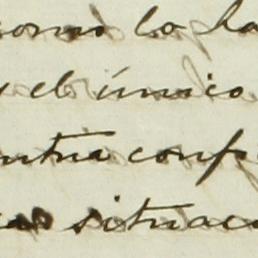 como lo ha
y el único
ntra conf
situac